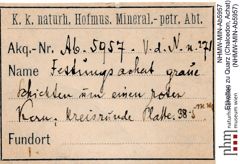 K. k. naturh. Hofmus. Mineral.-petr. Abt.
Akq.-Nr. Ab. 5957. V. d. N. n. 271
Name Festungsachat graue
Schichten um einen roten
Kern, kreisrunde Platte. 38·5
Fundort
NHMW-MIN-Ab5957
zu Quarz (Chalcedon, Achat)
NHMW-MIN-Ab5957
nhm
museum wien